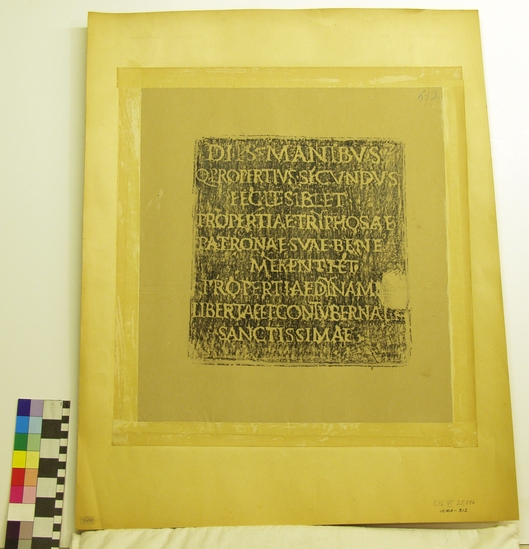 DIIS MANIBVS
Q PROPERTIVS SECVNDVS
FECIT SIBI ET
PROPERTIAE TRIPHOSAE
PATRONAE SVAE BENE
MERENTI ET
PROPERTIAE DYNAMI
LIBERTAE ET CONTVBERNALI
SANCTISSIMAE